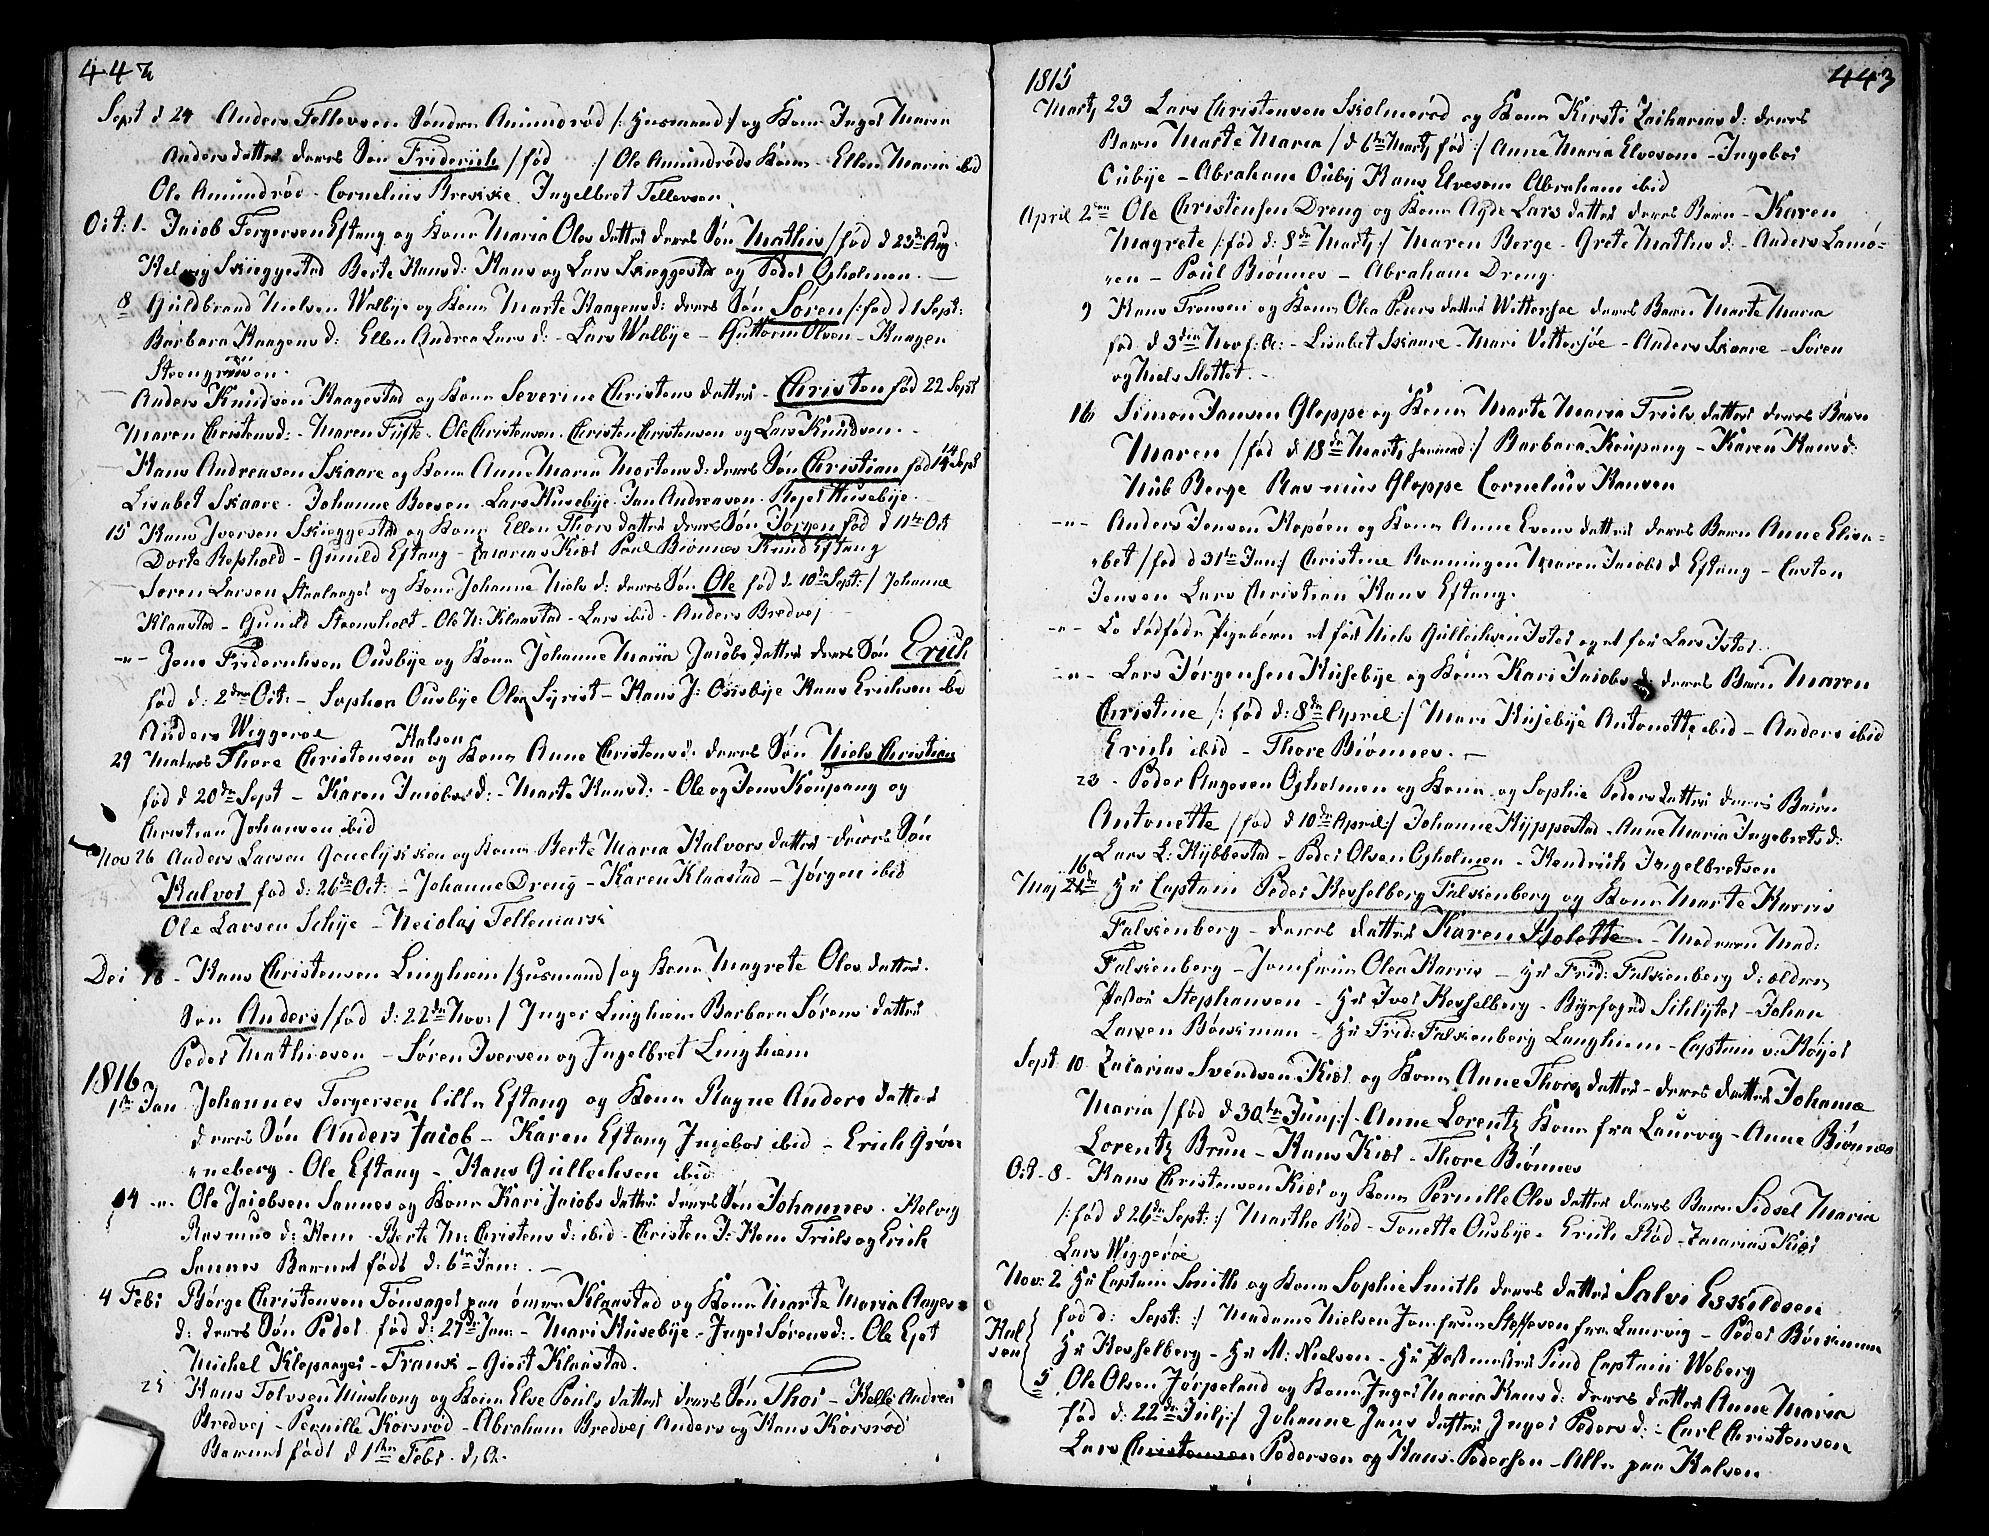 442
Sept d 24 Anders Tellevsen Søndre Amundrød /: Husmand :/ og Kone Inger Maria
Anders datter deres Søn Friderich / fød :/ Ole Amundrøds Kone - Ellen Maria ibid
Ole Amundrød - Cornelius Breskke Ingelbret Tellevsen
Oct: 1. Jacob Torgersen Eftang og Kone Maria Oles datter deres Søn Mathis / fød d 23de Aug.
Helvig Skieggestad Berte Hansd: Hans og Lars Skieggestad og Peder Ogholmen. -
8 Guldbrand Nielsen Valbije og Kone Marte Haagensd: deres Søn Søren /: fød d 1 Sept:
Barbara Haagensd: Ellen Andrea Lars d: - Lars Walbije - Guttorm Olsen - Haagen
Steengrøven.
Anders Knudsen Haagestad og Kone Severine Christens datter - Christen fød 22 Sept
Maren Christensd: - Maren Tufte - Ole Christensen - Christen Christensen og Lars Knudsen. -
Hans Andreasen Skaare og Kone Anne Maria Mortensd: deres Søn Christian fød 14 Sept
Lisabet Skaare - Johanne Boesen - Lars Husebije - Jan Andreasen - Roger Husebije.
15 Hans Iversen Skieggestad og Kone Ellen Thors datter deres Søn Jørgen fød d 11te Oct
Dorte Rephold - Gunild Eftang - Zacarias Kiær Poul Biønnes Knud Eftang
Søren Larsen Staalanger og Kone Johanne Niels d: deres Søn Ole fød d 10de Sept: / Johanne
Klaastad - Gunild Steensholt - Ole N: Klaastad - Lars ibid - Anders Bredvej -
-"- Jens Friderichsen Ousbije og Kone Johanne Maria Jacobs datter deres Søn Erich
fød d: 2den Oct: - Sophea Ousbije Olea Syrist - Hans J: Ousbije Hans Erichsen ibd
Anders Wiggeroe
29 Matros Thore Christensen Halsen og Kone Anne Christensd: deres Søn Niels Christian
fød d 20de Sept - Karen Jacobsd: - Marte Hansd: - Ole og Jens Koupang og
Christian Johansen ibid
Nov 26 Anders Larsen og Kone Berte Maria Halvors datter deres Søn
Halvor fød d: 26de Oct: - Johanne Dreng - Karen Klaastad - Jørgen ibid
Ole Larsen Schije - Neiolaj Tellemarsk
Dec 18 - Hans Christensen Linghiem / Husmand / og Kone Magrete Oles datter.
Søn Anders / fød d: 22de Nov: / Inger Linghiem Barbara Sørens datter
Peder Mathiesen - Søren Iversen og Ingelbret Linghiem
1816
1ste Jan Johannes Torgersen lille Eftang og Kone Ragne Anders datter
deres Søn Anders Jacob - Karen Eftang Ingebor ibid - Erich Grøn
"neberg - Ole Eftang - Hans Gullichsen ibid
14 -"- Ole Jacobsen Sannes og Kone Kari Jacobs datter deres Søn Johannes - Helvig
Rasmus d: Hem - Berte M: Christens d: ibid - Christen J: Hem Truls og Erich
Sannes Barnet født d: 6te Jan: -
4 Febr Børge Christensen Fonvager paa ømre Klaastad og Kone Marte Maria Aages
d: deres Søn Peder fød d: 27de Jan: - Mari Husebije - Inger Sørensd: - Ole Giet
Michel Klepaager - Frans - Giert Klaastad.
25 Hans Tolvsen Minhong og Kone Else Pouls datter deres Søn Thor - Helle Andrea
Bredvej - Pernille Korsrød - Abraham Bredvej Anders og Hans Korsrød
Barnet født d 1ste Febr. d: A:
1815 443
Marty 23 Lars Christensen Skolmerød og Kone Kirsti Zacharias d: deres
Barn Marte Maria / d 6te Marty fød :/ Anne Maria Elvesom - Ingebor
Oubije - Abraham Oubij Hans Elvesom Abraham ibid
April 2den Ole Christensen Dreng og Kone Agde Lars datter deres Barn - Karen
Magrete /: fød d: 8de Marty :/ Maren Berge - Grete Mathis d: - Anders Lamø=
"en - Poul Biønnes - Abraham Dreng.
9 Hans Fransen og Kone Olea Peders datter Wittersøe deres Barn Marte Maria
fød d 3die Nov f: A: - Lisabet Skaare - Mari Vittersøe - Anders Skaare - Søren
og Niels Slottet. -
16 Simon Jansen Gloppe og Kone Marte Maria Truls datter deres Barn
Maren / fød d 18de Marty / Barbara Koupang - Karen Hansd:
Nub Berge Rasmus Gloppe Cornelius Hansen
-"- Anders Jensen Røpøen og Kone Anne Evens datter deres Barn Anne Elisa=
"bet / fød d 31te Jan:/ Christine Ronningen Maren Jacobs d Eftang - Carsten
Jensen Lars Christian Hans Eftang.
-"- To dødfødte Pigebørn et for Niels Gullichsen Ister og et for Lars Ister.
-"- Lars Jørgensen Husebije og Kone Kari Jacobs d deres Barn Maren
Christine /: fød d: 8de April :/ Mari Husebije Antonette ibid - Anders ibid
Erich ibid - Thore Biønnes. -
23 - Peder Aagesen Ogholmen og Kone og Sophie Peders datter deres Barn
Antonette / fød d 10de April:/ Johanne Kyppestad - Anne Maria Ingebrets d:
Lars L: Kybbestad - Peder Olsen Ogholmen - Hendrich Ingelbretsen
Maj 16 Hr Captain Peder Kesselberg Falkenberg og Kone Marte Harris
Falkenberg - deres datter Karen Nolette - Madamen Mad:
Falkenberg - Jomfrue Olea Harris - Hr Frid: Falkenberg d: ældre
Pastor Stephansen - Hr Iver Kesselberg - Byefogud Schlyter - Johan
Larsen Bowsman - Hr Frid: Falkenberg Langhiem - Captain v: Høijer
Sept 10 Zacarias Svendsen Kiær og Kone Anne Thors datter - deres datter Johanne
Maria / fød d 30te Juni:/ - Anne Lorentz Kone fra Laurvig - Anne Biønnes
Lorentz Brun - Hans Kiær - Thore Biønnes
Oct - 8 - Hans Christensen Kiær og Kone Pernille Oles datter deres Barn Sidsel Maria
/: fød d 26de Sept: :/ Marthe Rød - Tonette Ousbije - Erich Rød - Zacarias Kiær
Lars Wiggerøe
Nov: 2 Hr Captain Smith og Kone Sophie Smith deres datter Salvi Eskildsen
fød d: Sept: :/ Madame Nielsen Jomfrue Steffesen fra Laurvig - Peder Boesman
Hal
sen Hr Kesselberg - Hr M: Nielsen - Hr Postmester Pind Captain Weberg
5 Ole Olsen Jørpeland og Kone Inger Maria Hansd: deres datter Anne Maria
fød d: 22de Julj:/ Johanne Jans datter Inger Peders d: - Carl Christensen
Lars Christensen Pedersen og Hans Pedersen - Alle paa Halsen